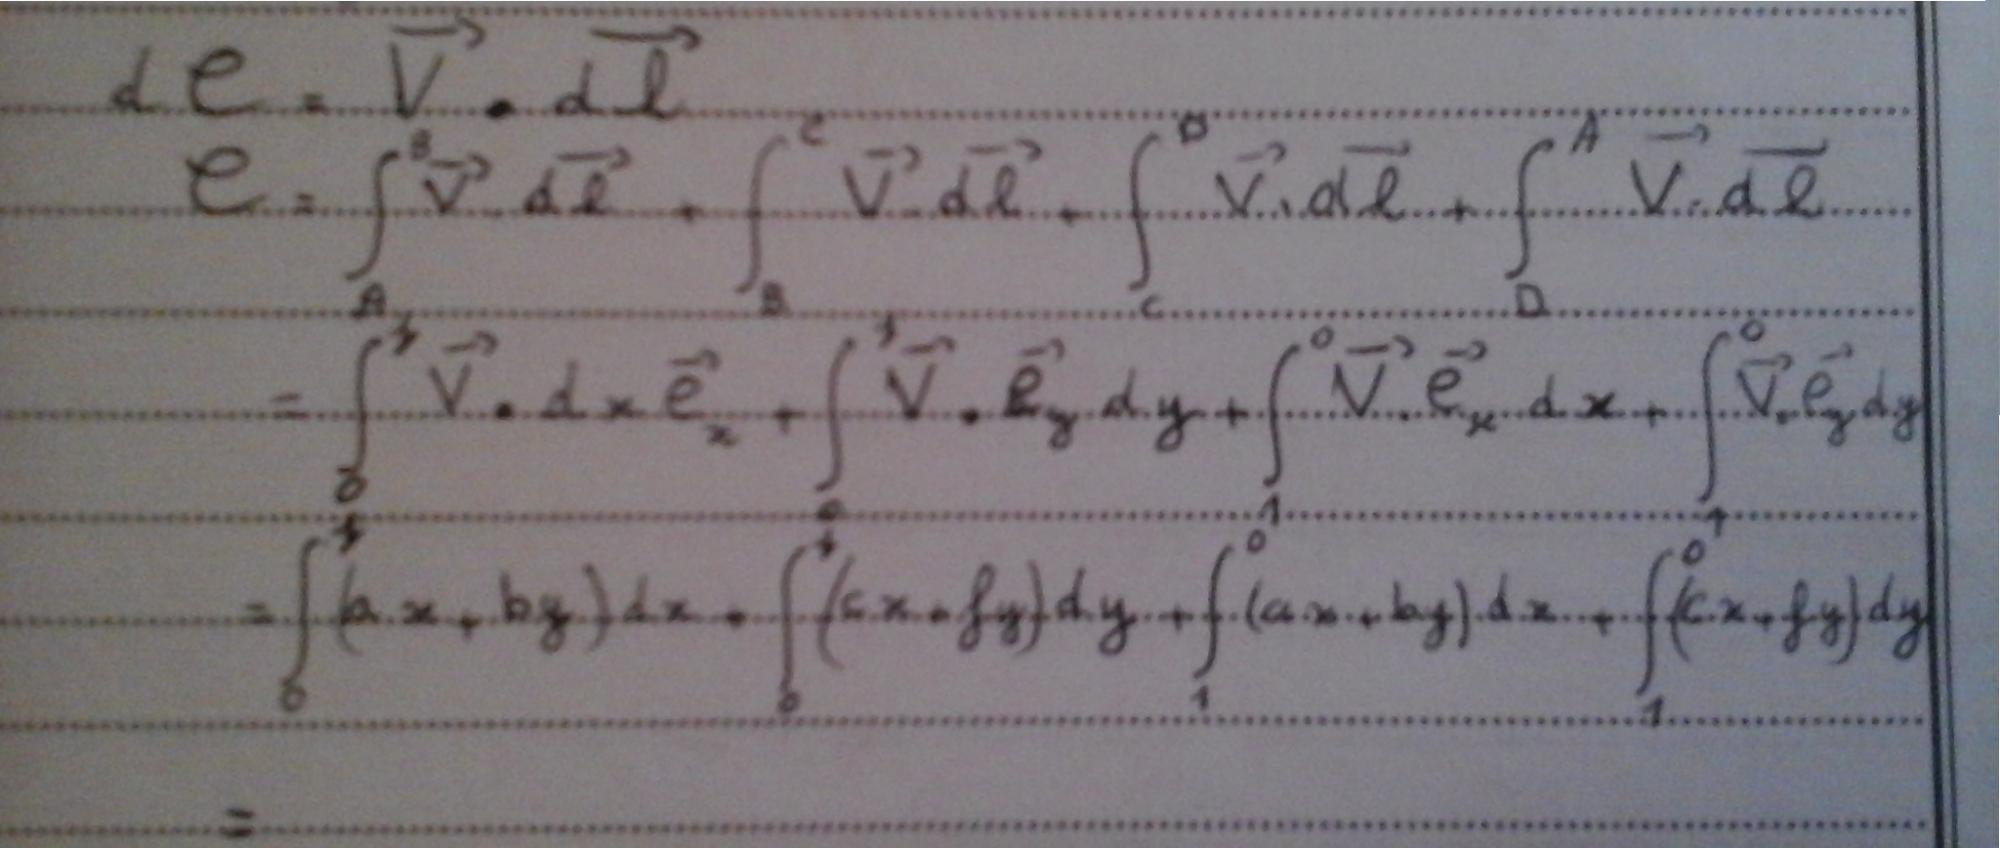 d C = V⃗ . dl⃗
C = ∫_A^B V⃗ . dl⃗ + ∫_B^C V⃗ . dl⃗ + ∫_C^D V⃗ . dl⃗ + ∫_D^A V⃗ . dl⃗
= ∫_0^1 V⃗ . dx e⃗_x + ∫_0^1 V⃗ . e⃗_y dy + ∫_1^0 V⃗ . e⃗_x dx + ∫_1^0 V⃗ . e⃗_y dy
= ∫_0^1 (ax + by) dx + ∫_0^1 (cx + fy) dy + ∫_1^0 (ax + by) dx + ∫_1^0 (cx + fy) dy
=